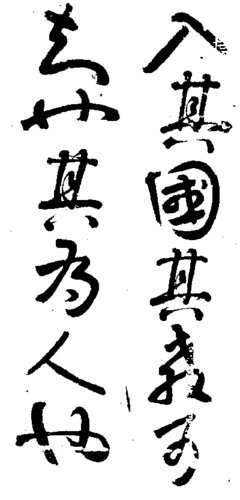 入其國其教可
知也其為人也